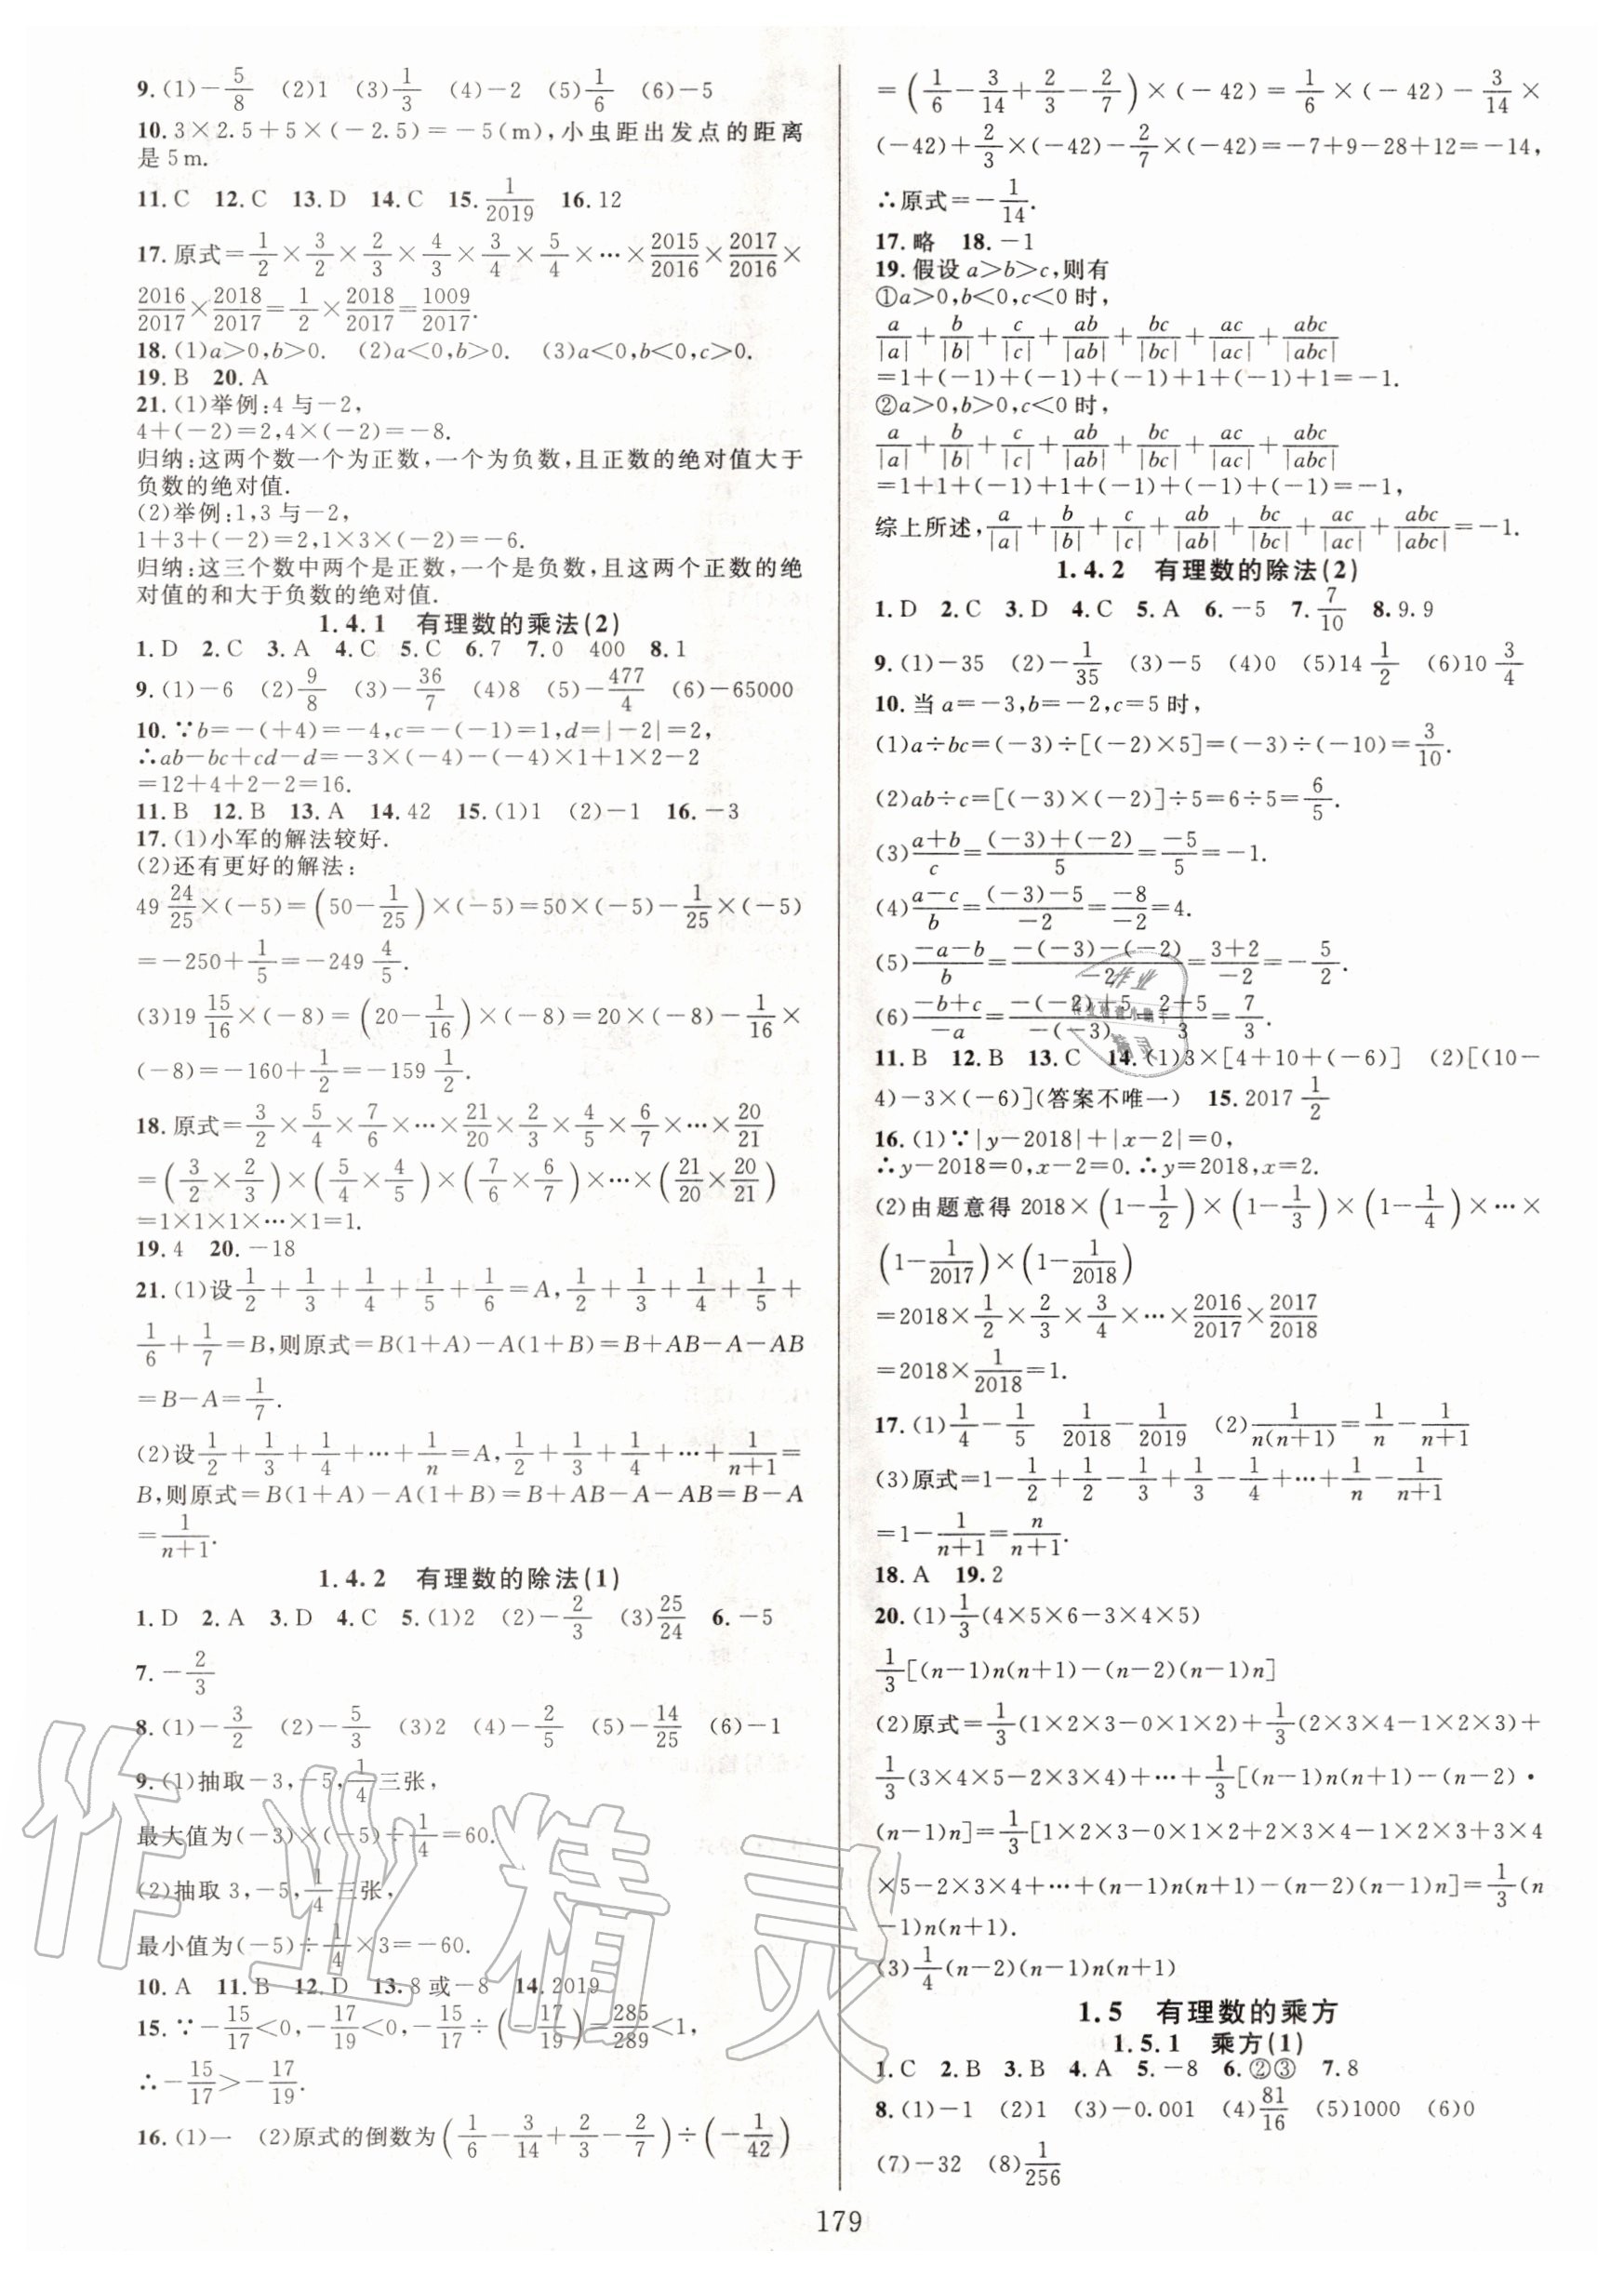 9.(1)-5/8 (2)1 (3)1/3 (4)-2 (5)1/6 (6)-5
10.3×2.5+5×(-2.5)=-5(m),小虫距出发点的距离
是5m.
11.C 12.C 13.D 14.C 15.1/2019 16.12
17.原式=1/2×3/2×2/3×4/3×3/4×5/4×…×2015/2016×2017/2016×
2016/2017×2018/2017=1/2×2018/2017=1009/2017.
18.(1)a>0,b>0. (2)a<0,b>0. (3)a<0,b<0,c>0.
19.B 20.A
21.(1)举例:4与-2,
4+(-2)=2,4×(-2)=-8.
归纳:这两个数一个为正数,一个为负数,且正数的绝对值大于
负数的绝对值.
(2)举例:1,3与-2,
1+3+(-2)=2,1×3×(-2)=-6.
归纳:这三个数中两个是正数,一个是负数,且这两个正数的绝
对值的和大于负数的绝对值.
1.4.1 有理数的乘法(2)
1.D 2.C 3.A 4.C 5.C 6.7 7.0 400 8.1
9.(1)-6 (2)9/8 (3)-36/7 (4)8 (5)-477/4 (6)-65000
10.∵b=-(+4)=-4,c=-(-1)=1,d=|-2|=2,
∴ab-bc+cd-d=-3×(-4)-(-4)×1+1×2-2
=12+4+2-2=16.
11.B 12.B 13.A 14.42 15.(1)1 (2)-1 16.-3
17.(1)小军的解法较好.
(2)还有更好的解法:
49 24/25×(-5)=(50-1/25)×(-5)=50×(-5)-1/25×(-5)
=-250+1/5=-249 4/5.
(3)19 15/16×(-8)=(20-1/16)×(-8)=20×(-8)-1/16×
(-8)=-160+1/2=-159 1/2.
18.原式=3/2×5/4×7/6×…×21/20×2/3×4/5×6/7×…×20/21
=(3/2×2/3)×(5/4×4/5)×(7/6×6/7)×…×(21/20×20/21)
=1×1×1×…×1=1.
19.4 20.-18
21.(1)设1/2+1/3+1/4+1/5+1/6=A,1/2+1/3+1/4+1/5+
1/6+1/7=B,则原式=B(1+A)-A(1+B)=B+AB-A-AB
=B-A=1/7.
(2)设1/2+1/3+1/4+…+1/n=A,1/2+1/3+1/4+…+1/(n+1)=
B,则原式=B(1+A)-A(1+B)=B+AB-A-AB=B-A
=1/(n+1).
1.4.2 有理数的除法(1)
1.D 2.A 3.D 4.C 5.(1)2 (2)-2/3 (3)25/24 6.-5
7.-2/3
8.(1)-3/2 (2)-5/3 (3)2 (4)-2/5 (5)-14/25 (6)-1
9.(1)抽取-3,-5,1/4三张,
最大值为(-3)×(-5)÷1/4=60.
(2)抽取3,-5,1/4三张,
最小值为(-5)÷1/4×3=-60.
10.A 11.B 12.D 13.8或-8 14.2019
15.∵-15/17<0,-17/19<0,-15/17÷(-17/19)=285/289<1,
∴-15/17>-17/19.
16.(1)一 (2)原式的倒数为(1/6-3/14+2/3-2/7)÷(-1/42)
=(1/6-3/14+2/3-2/7)×(-42)=1/6×(-42)-3/14×
(-42)+2/3×(-42)-2/7×(-42)=-7+9-28+12=-14,
∴原式=-1/14.
17.略 18.-1
19.假设a>b>c,则有
①a>0,b<0,c<0时,
a/|a|+b/|b|+c/|c|+ab/|ab|+bc/|bc|+ac/|ac|+abc/|abc|
=1+(-1)+(-1)+(-1)+1+(-1)+1=-1.
②a>0,b>0,c<0时,
a/|a|+b/|b|+c/|c|+ab/|ab|+bc/|bc|+ac/|ac|+abc/|abc|
=1+1+(-1)+1+(-1)+(-1)+(-1)=-1,
综上所述,a/|a|+b/|b|+c/|c|+ab/|ab|+bc/|bc|+ac/|ac|+abc/|abc|=-1.
1.4.2 有理数的除法(2)
1.D 2.C 3.D 4.C 5.A 6.-5 7.7/10 8.9.9
9.(1)-35 (2)-1/35 (3)-5 (4)0 (5)14 1/2 (6)10 3/4
10.当a=-3,b=-2,c=5时,
(1)a÷bc=(-3)÷[(-2)×5]=(-3)÷(-10)=3/10.
(2)ab÷c=[(-3)×(-2)]÷5=6÷5=6/5.
(3)(a+b)/c=((-3)+(-2))/5=-5/5=-1.
(4)(a-c)/b=((-3)-5)/-2=-8/-2=4.
(5)(-a-b)/b=(-(-3)-(-2))/-2=(3+2)/-2=-5/2.
(6)(-b+c)/-a=(-(-2)+5)/-(-3)=(2+5)/3=7/3.
11.B 12.B 13.C 14.(1)3×[4+10+(-6)] (2)[(10-
4)-3×(-6)](答案不唯一) 15.2017 1/2
16.(1)∵|y-2018|+|x-2|=0,
∴y-2018=0,x-2=0.∴y=2018,x=2.
(2)由题意得2018×(1-1/2)×(1-1/3)×(1-1/4)×…×
(1-1/2017)×(1-1/2018)
=2018×1/2×2/3×3/4×…×2016/2017×2017/2018
=2018×1/2018=1.
17.(1)1/4-1/5 1/2018-1/2019 (2)1/n(n+1)=1/n-1/(n+1)
(3)原式=1-1/2+1/2-1/3+1/3-1/4+…+1/n-1/(n+1)
=1-1/(n+1)=n/(n+1).
18.A 19.2
20.(1)1/3(4×5×6-3×4×5)
1/3[(n-1)n(n+1)-(n-2)(n-1)n]
(2)原式=1/3(1×2×3-0×1×2)+1/3(2×3×4-1×2×3)+
1/3(3×4×5-2×3×4)+…+1/3[(n-1)n(n+1)-(n-2)·
(n-1)n]=1/3[1×2×3-0×1×2+2×3×4-1×2×3+3×4
×5-2×3×4+…+(n-1)n(n+1)-(n-2)(n-1)n]=1/3(n
-1)n(n+1).
(3)1/4(n-2)(n-1)n(n+1)
1.5 有理数的乘方
1.5.1 乘方(1)
1.C 2.B 3.B 4.A 5.-8 6.②③ 7.8
8.(1)-1 (2)1 (3)-0.001 (4)81/16 (5)1000 (6)0
(7)-32 (8)1/256
179
作业精灵
作业
精灵